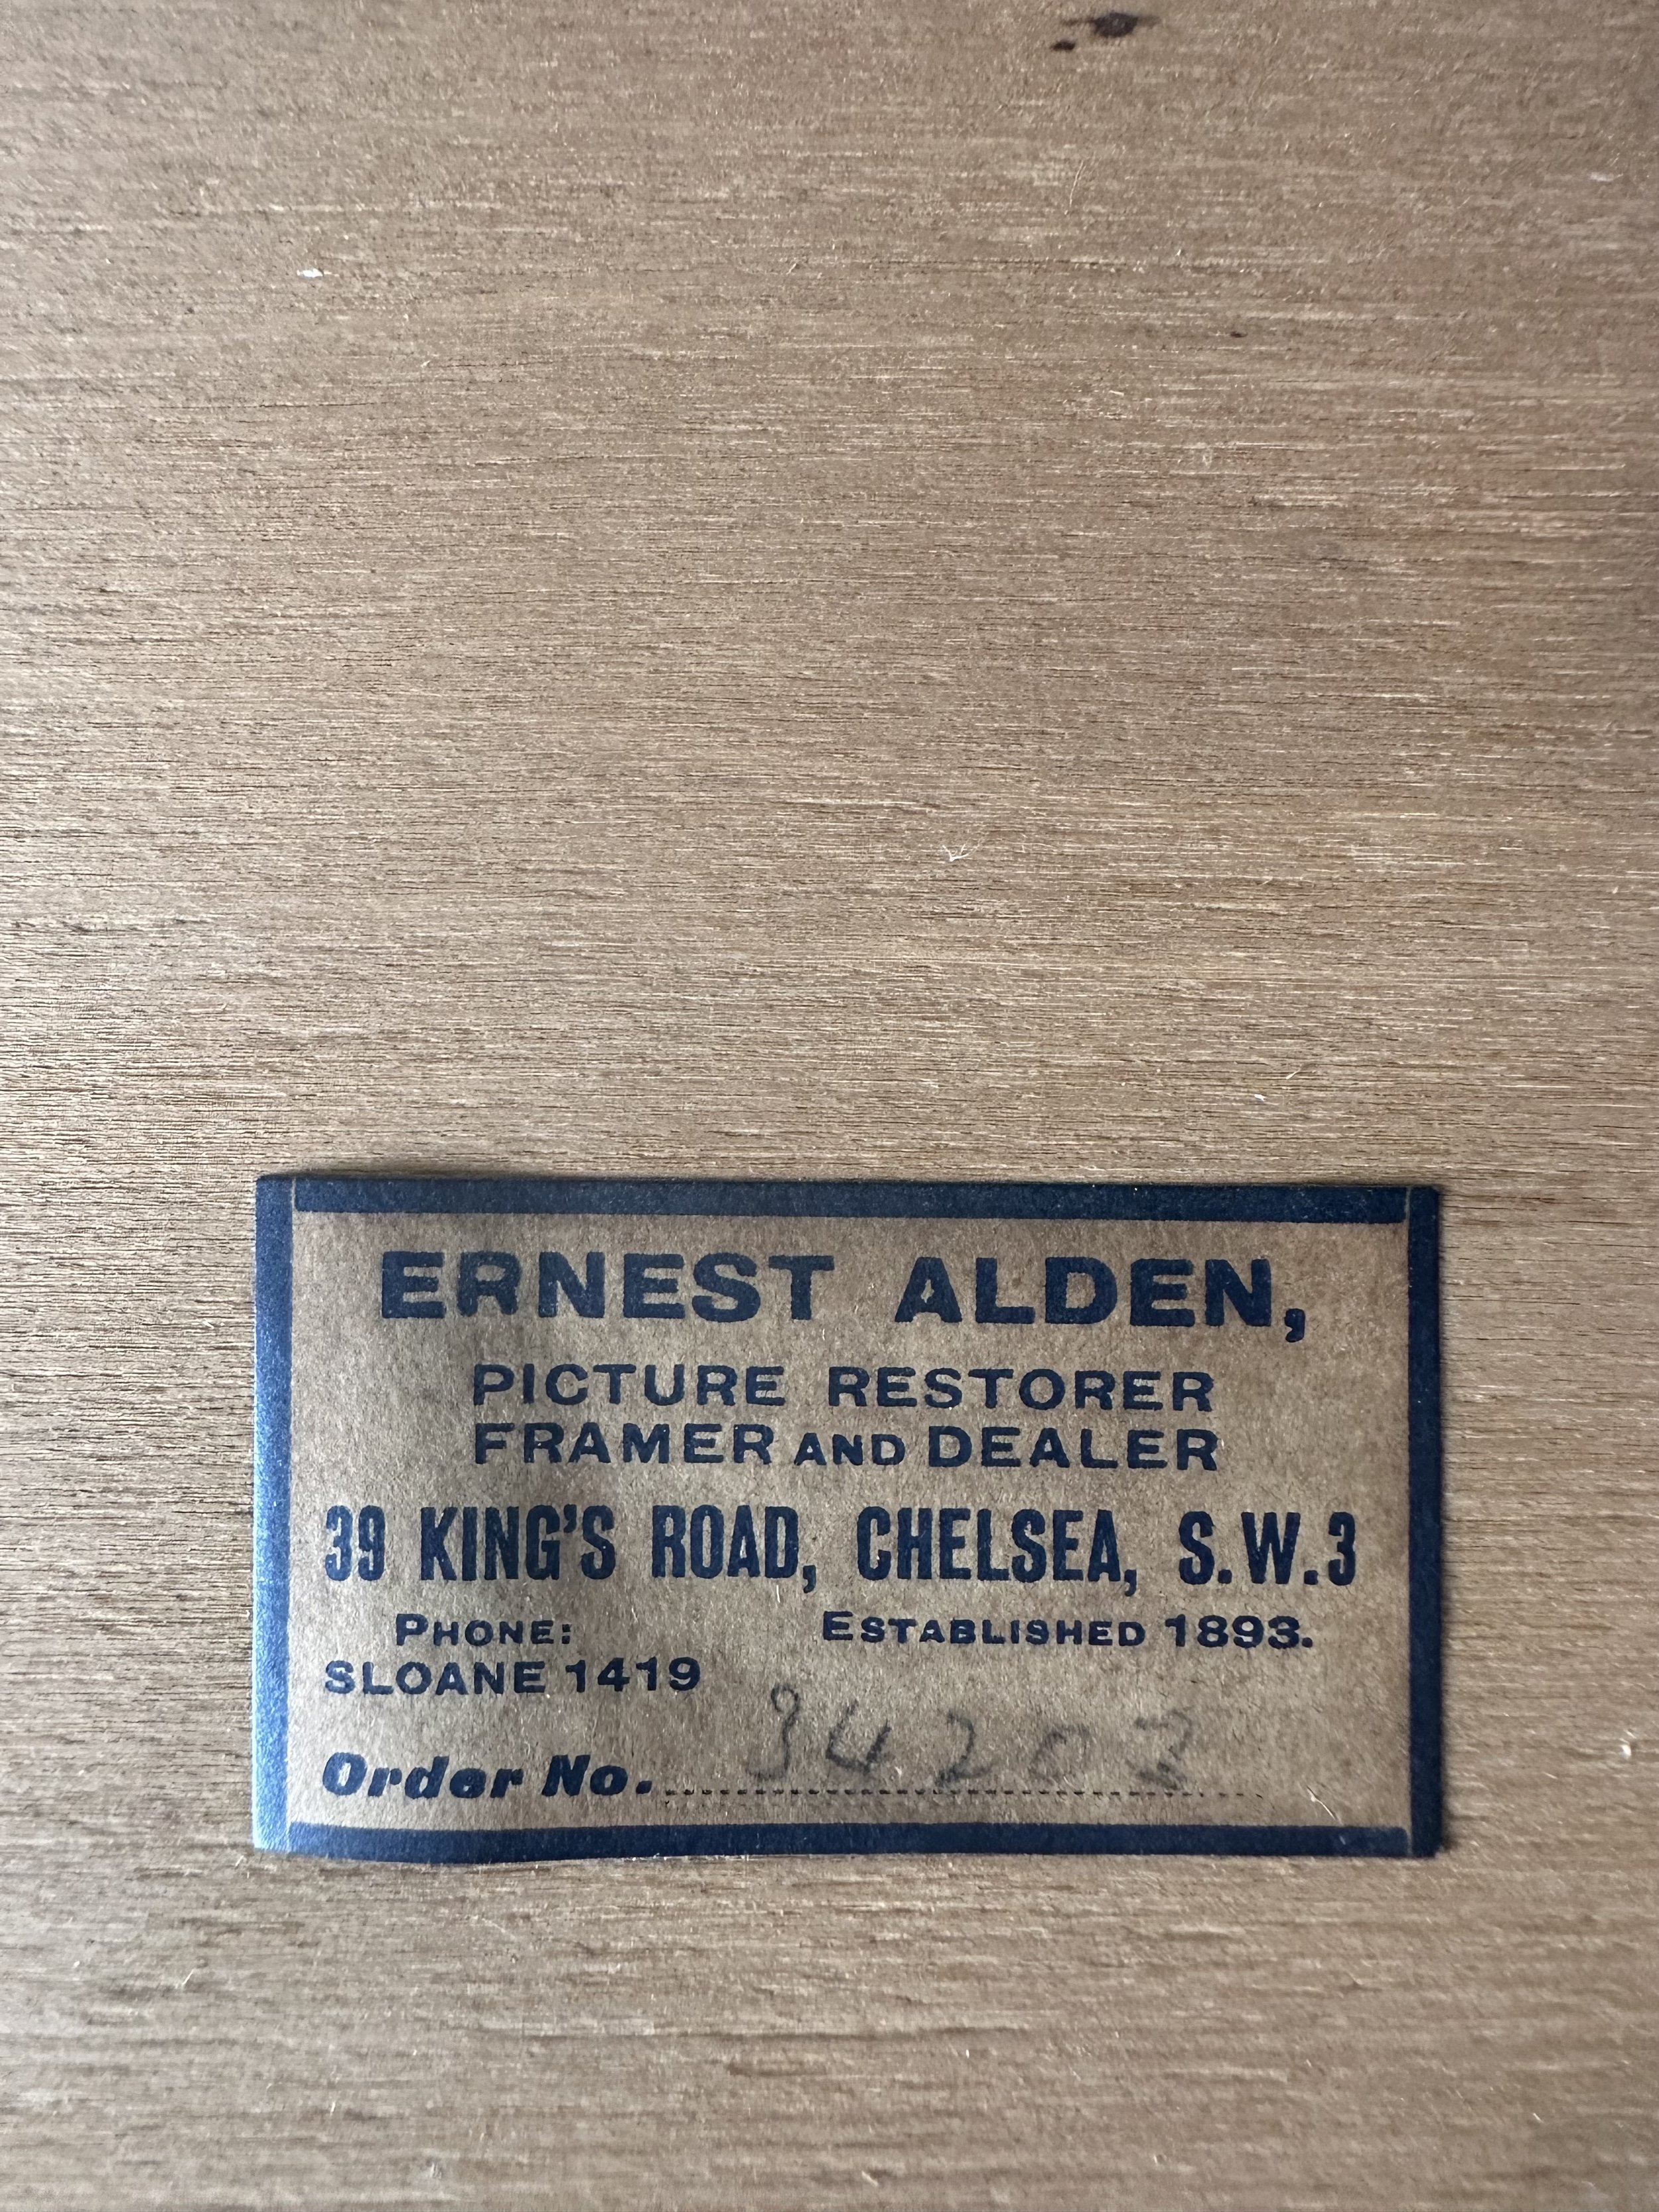 ERNEST ALDEN,
PICTURE RESTORER
FRAMER AND DEALER
39 KING'S ROAD, CHELSEA, S.W.3
PHONE: ESTABLISHED 1893.
SLOANE 1419
Order No. 34203